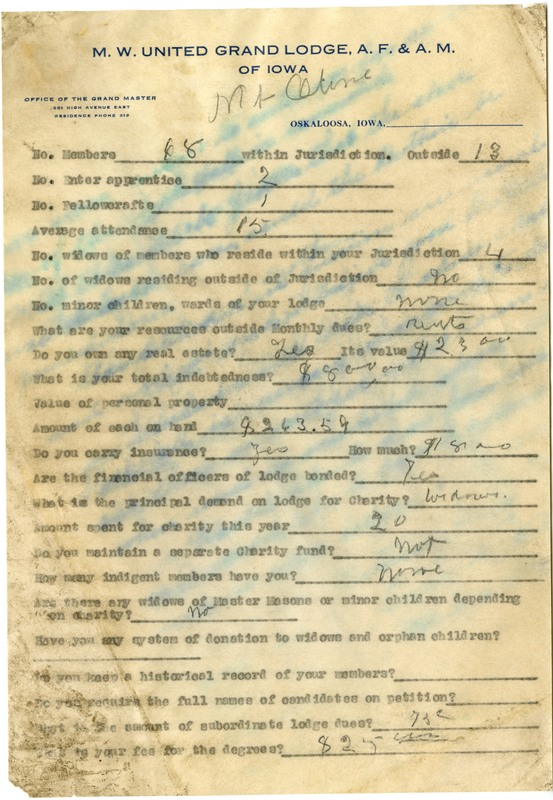 M. W. UNITED GRAND LODGE, A. F. & A. M.
OF IOWA
Mt Olive
OFFICE OF THE GRAND MASTER
HIGH AVENUE EAST
RESIDENCE PHONE
OSKALOOSA, IOWA,
No. Members 68 within Jurisdiction. Outside 13
No. Enter apprentice 2
No. Fellowcrafts 1
Average attendance 15
No. widows of members who reside within your Jurisdiction 4
No. of widows residing outside of Jurisdiction No
No. minor children, wards of your lodge none
What are your resources outside Monthly dues? rents
Do you own any real estate? Yes Its value
What is your total indebtedness?
Value of personal property
Amount of cash on hand $263.59
Do you carry insurance? Yes How much?
Are the financial officers of lodge bonded? Yes
What is the principal demand on lodge for Charity? Widows.
Amount spent for charity this year 20
Do you maintain a separate Charity fund? Not
How many indigent members have you? None
Are there any widows of Master Masons or minor children depending
on charity? No
Have you any system of donation to widows and orphan children?
Do you keep a historical record of your members?
Do you require the full names of candidates on petition?
What is the amount of subordinate lodge dues? 75c
is your fee for the degrees? $25